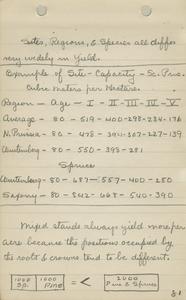 Sites, Regions, & Species all differ
very widely in Yield.
Example of Site-Capacity - Sc. Pine.
Cubic meters per Hectare.
Region - Age - I - II - III - IV - V
Average - 80 - 519 - 400 - 298 - 224 - 139
N. Prussia - 80 - 478 - 307 - 227 - 139
Wurtenburg - 80 - 550 - 393 - 281
Spruce
Wurtenburg - 80 - 687 - 557 - 400 - 250
Saxony - 80 - 842 - 668 - 540 - 390
Mixed stands always yield more per
acre because the positions occupied by
the roots & crowns tend to be different.
1000 Sp. 1000 Pine = < 2000 Pine & Spruce